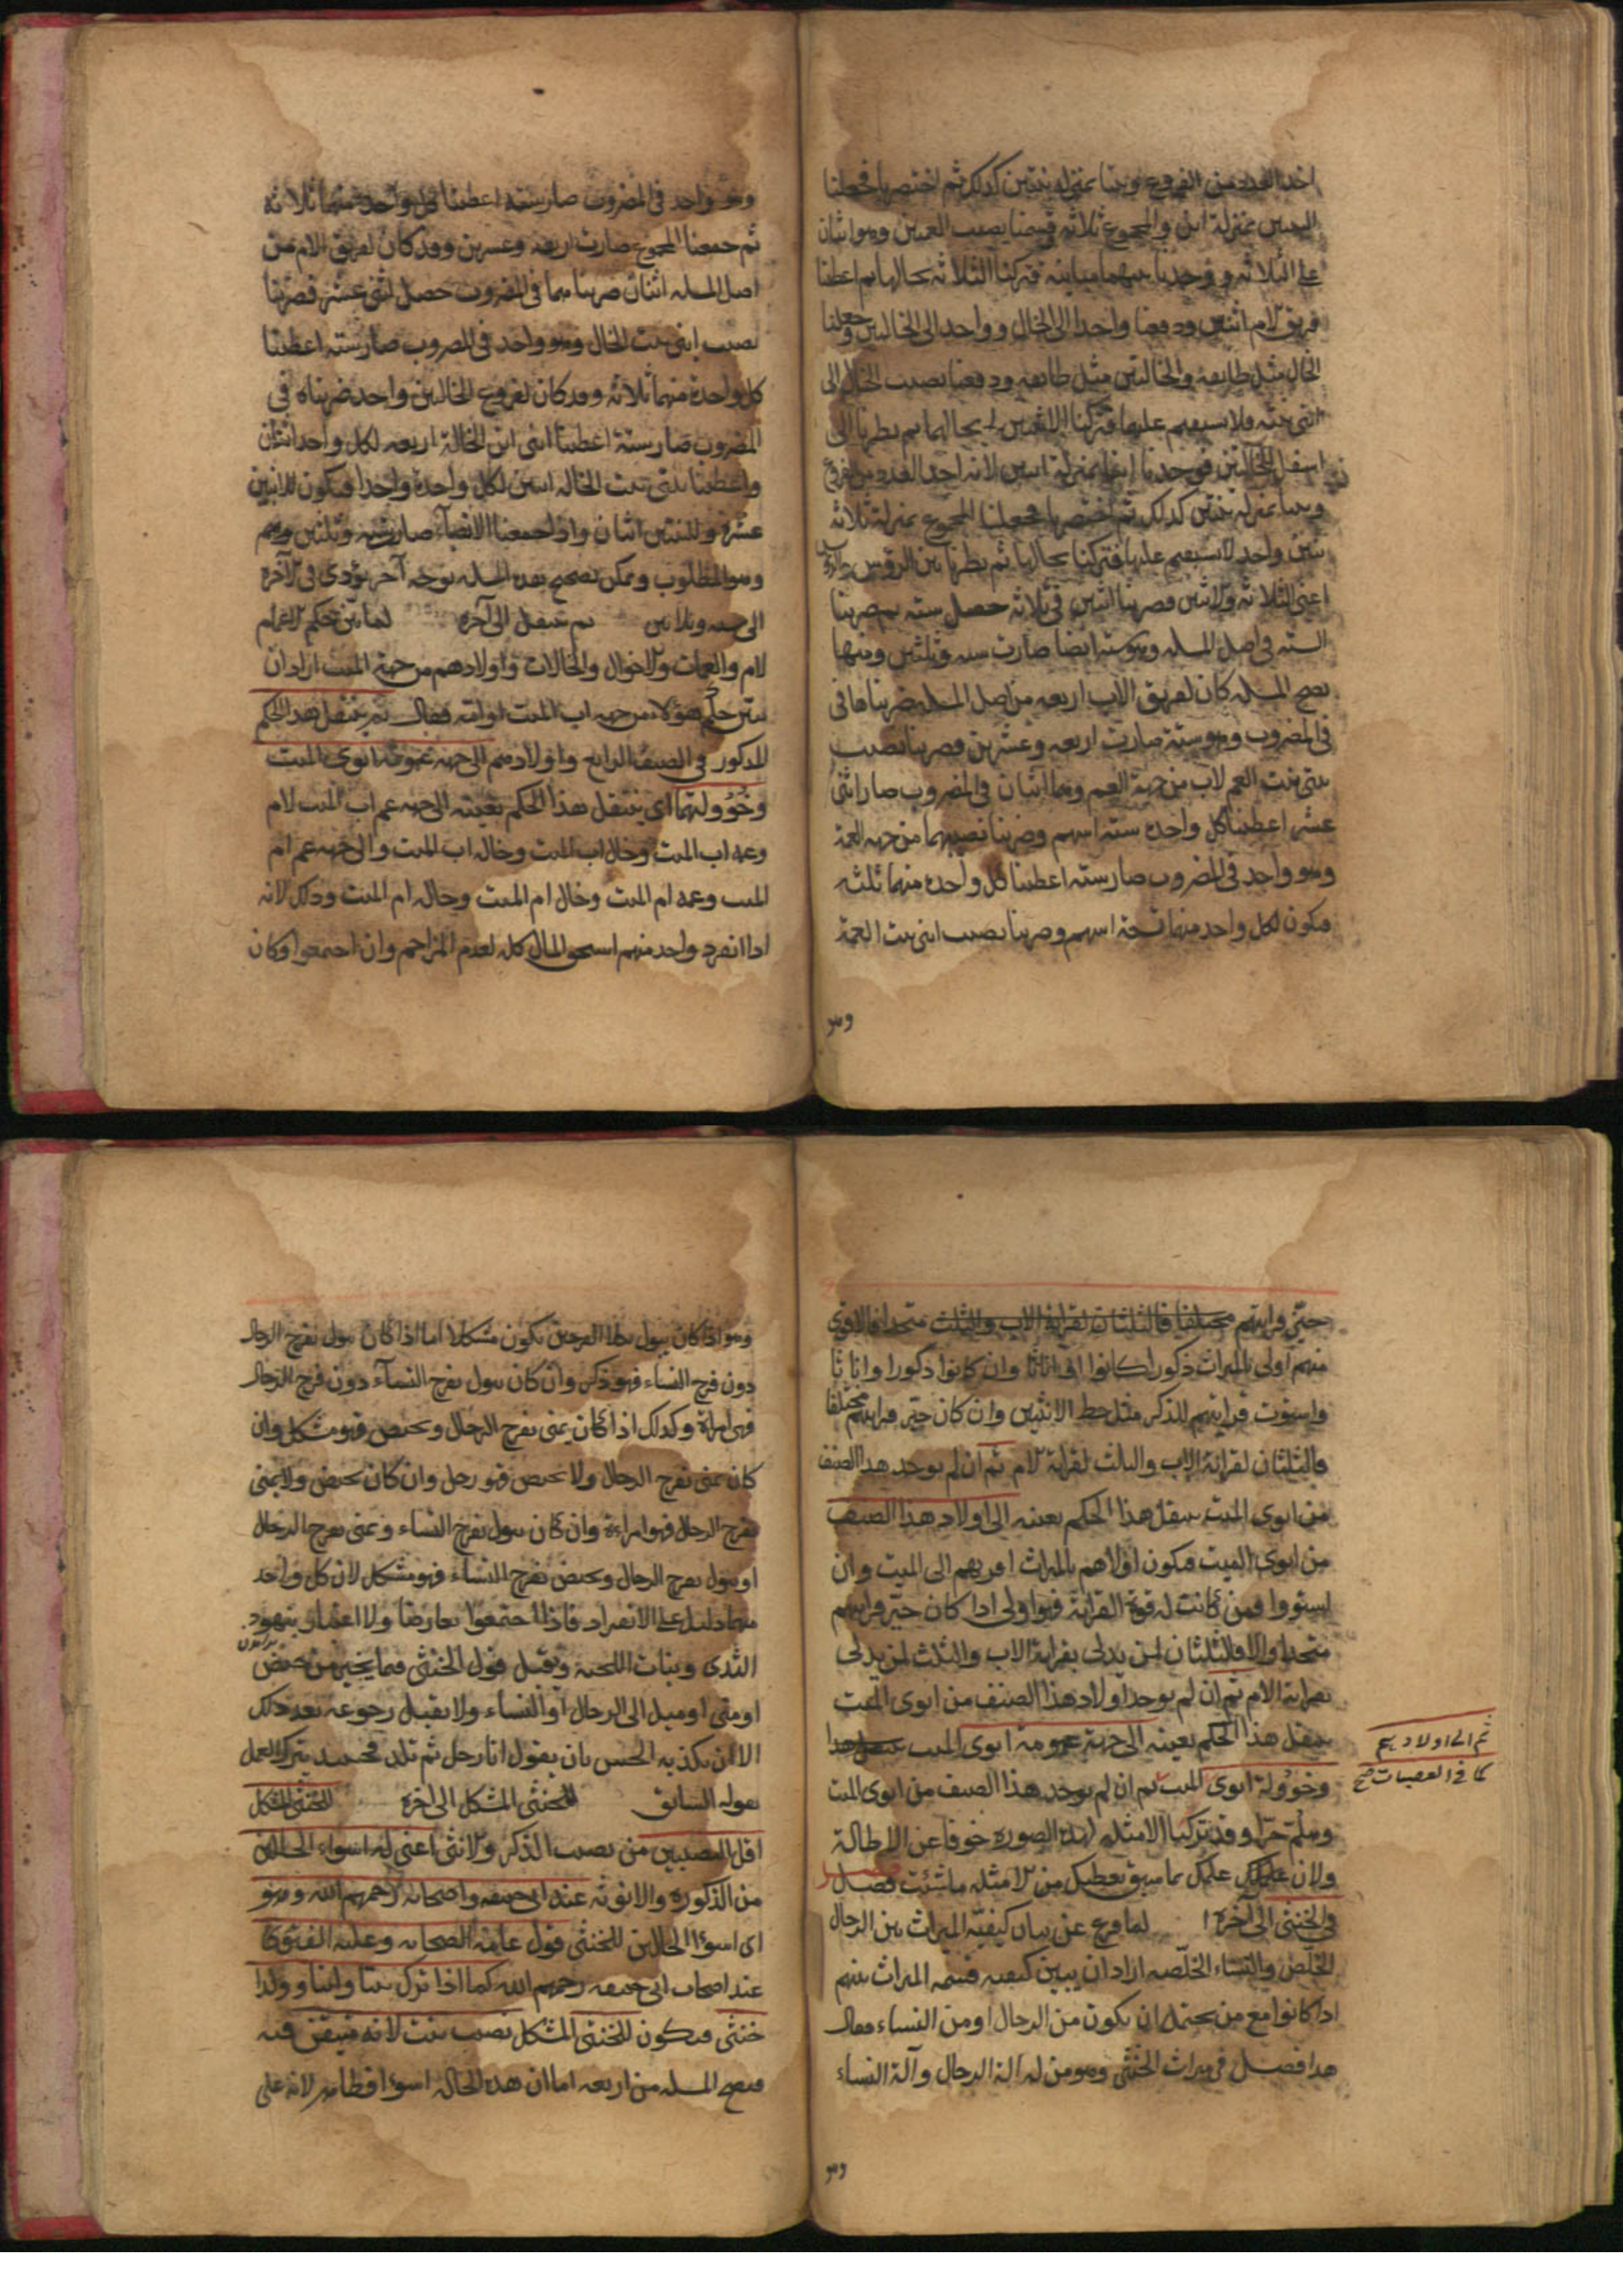 اخذ العدد من الفروع وبنتا بمنزلة بنتين كذلك ثم اختصرناه فجعلنا
البنتين بمنزلة ابن والمجموع ثلاثة قسمنا نصيب العمتين وهو اثنان
على الثلاثة ووجدنا بينهما مباينة فتركنا الثلاثة بحالها ثم اعطينا
فريق الام اثنين ودفعنا واحدا الى الخال وواحدا الى الخالتين وجعلنا
الخال مثل طايفة والخالتين مثل طايفة ودفعنا نصيب الخال الى
ابنتي بنته فلا يستقيم عليهما فتركنا الاثنين بحالهما ثم نظرنا الى
اسفل الخالتين فوجدنا ابنا بمنزلة ابنين لانه اخذ العدد من الفروع
وبنتا بمنزلة بنتين كذلك ثم اختصرناه فجعلنا المجموع بمنزلة ثلاثة
بنين وواحد لا يستقيم عليها فتركنا بحالها ثم نظرنا بين الروس والروس
اعني الثلاثة والاثنين فضربنا اثنين في ثلاثة حصل ستة ثم ضربنا
الستة في اصل المسلة وهو ستة ايضا صارت ستة وثلثين ومنها
تصح المسلة كان لفريق الاب اربعة من اصل المسلة ضربناها في
في المضروب وهو ستة صارت اربعة وعشرين وضربنا نصيب
بنتي بنت العم لاب من جهة العم وهما اثنان في المضروب صار اثنى
عشر اعطينا كل واحدة ستة اسهم وضربنا نصيبهما من جهة العمة
وهو واحد في المضروب صار ستة اعطينا كل واحدة منهما ثلثة
فيكون لكل واحد منهما تسعة اسهم وضربنا نصيب ابني بنت العمة
وهو
وهو واحد في المضروب صار ستة اعطينا كل واحد منهما ثلاثة
ثم جمعنا المجموع صارت اربعة وعشرين وقد كان لفريق الام من
اصل المسلة اثنان ضربنا هما في المضروب حصل اثنى عشر فضربنا
نصيب ابنتي بنت الخال وهو واحد في المضروب صار ستة اعطينا
كل واحدة منهما ثلاثة وقد كان لفروع الخالتين واحد ضربناه في
المضروب صار ستة اعطينا ابني ابن الخالة اربعة لكل واحد اثنان
واعطينا بنتي بنت الخالة اثنين لكل واحدة واحدا فيكون للابنين
عشرة وللبنتين اثنان واذا جمعنا الانصباء صار ستة وثلثين وهم
وهو المطلوب ويمكن تصحيح هذه المسلة بوجه آخر يؤدى في الآخرة
الى ستة وثلاثين ثم ينتقل الى آخره لما بين حكم الاعمام
لام والعمات والاخوال والخالات واولادهم من جهة الميت اراد ان
يبين حكم هؤلاء من جهة اب الميت او امه فقال ثم ينتقل هذا الحكم
المذكور في الصنف الرابع واولادهم الى جهة عمومة ابوى الميت
وخؤولتهما اى ينتقل هذا الحكم بعينه الى جهة عم اب الميت لام
وعمة اب الميت وخال اب الميت وخالة اب الميت والى جهة عم ام
الميت وعمة ام الميت وخال ام الميت وخالة ام الميت وذلك لانه
اذا انفرد واحد منهم استحق المال كله لعدم المزاحم وان اجتمعوا وكان
حيّز قرابتهم مختلفا فالثلثان لقرابة الاب والثلث متحدا فالاقوى
منهم اولى بالميراث ذكورا كانوا او اناثا وان كانوا ذكورا واناثا
واستوت قرابتهم للذكر مثل حظ الانثيين وان كان حيّز قرابتهم مختلفا
فالثلثان لقرابة الاب والثلث لقرابة الام ثم ان لم يوجد هذا الصنف
من ابوى الميت ينتقل هذا الحكم بعينه الى اولاد هذا الصنف
من ابوى الميت فيكون اولاهم بالميراث اقربهم الى الميت وان
استووا فمن كانت له قوة القرابة فهو اولى اذا كان حيّز قرابتهم
متحدا والا فالثلثان لمن يدلى بقرابة الاب والثلث لمن يدلى
بقرابة الام ثم ان لم يوجد اولاد هذا الصنف من ابوى الميت
ينتقل هذا الحكم بعينه الى جهة عمومة ابوى الميت
وخوؤلة ابوى الميت ثم ان لم يوجد هذا الصنف من ابوى الميت
ثم الى اولادهم
كما في العصبات صح
وهلم جرّا وقد تركنا الامثلة لهذه الصورة خوفا عن الاطالة
ولان علمك بما سبق يعطيك من الامثلة ما شئت فصل
في الخنثى الى آخره لما فرغ عن بيان كيفية الميراث بين الرجال
الخلّص والنساء الخلّصة اراد ان يبين كيفية قسمة الميراث بينهم
اذا كانوا مع من يحتمل ان يكون من الرجال او من النساء فقال
هذا فصل في ميراث الخنثى وهو من له الة الرجال وآلة النساء
وهو
وهو اذا كان يبول بكلا الفرجين يكون مشكلا اما اذا كان يبول بفرج الرجال
دون فرج النساء فهو ذكر وان كان يبول بفرج النساء دون فرج الرجال
فهى امراة وكذلك اذا كان يمنى بفرج الرجال ويحيض فهو مشكل وان
كان يمنى بفرج الرجال ولا يحيض فهو رجل وان كان يحيض ولا يمنى
بفرج الرجال فهو امراءة وان كان يبول بفرج النساء ويمنى بفرج الرجال
او يبول بفرج الرجال ويحيض بفرج النساء فهو مشكل لان كل واحد
منهما دليل على الانفراد فاذا اجتمعوا تعارضا ولا اعتبار بنهود
الثدى ونبات اللحية وتقبل قول الخنثى فيما يخبر من حيض
او منى او ميل الى الرجال او النساء ولا يقبل رجوعه بعد ذلك
الا ان يكذبه الحس بان يقول انا رجل ثم تلد فحينئذ يترك العمل
بقوله السابق للخنثى المشكل الى آخره للخنثى المشكل
اقل النصيبين من نصيب الذكر والانثى اعنى له اسواء الحالين
من الذكورة والانوثة عند ابى حنيفة واصحابه رحمهم الله وهو
اى اسوا الحالين للخنثى قول عامة الصحابة وعليه الفتوى كما
عند اصحاب ابى حنيفة رحمهم الله كما اذا ترك بنتا وابنا وولدا
خنثى فيكون للخنثى المشكل نصيب بنت لانه متيقن فيه
فتصح المسلة من اربعة اما ان هذه الحالة اسوء فظاهر لانه على